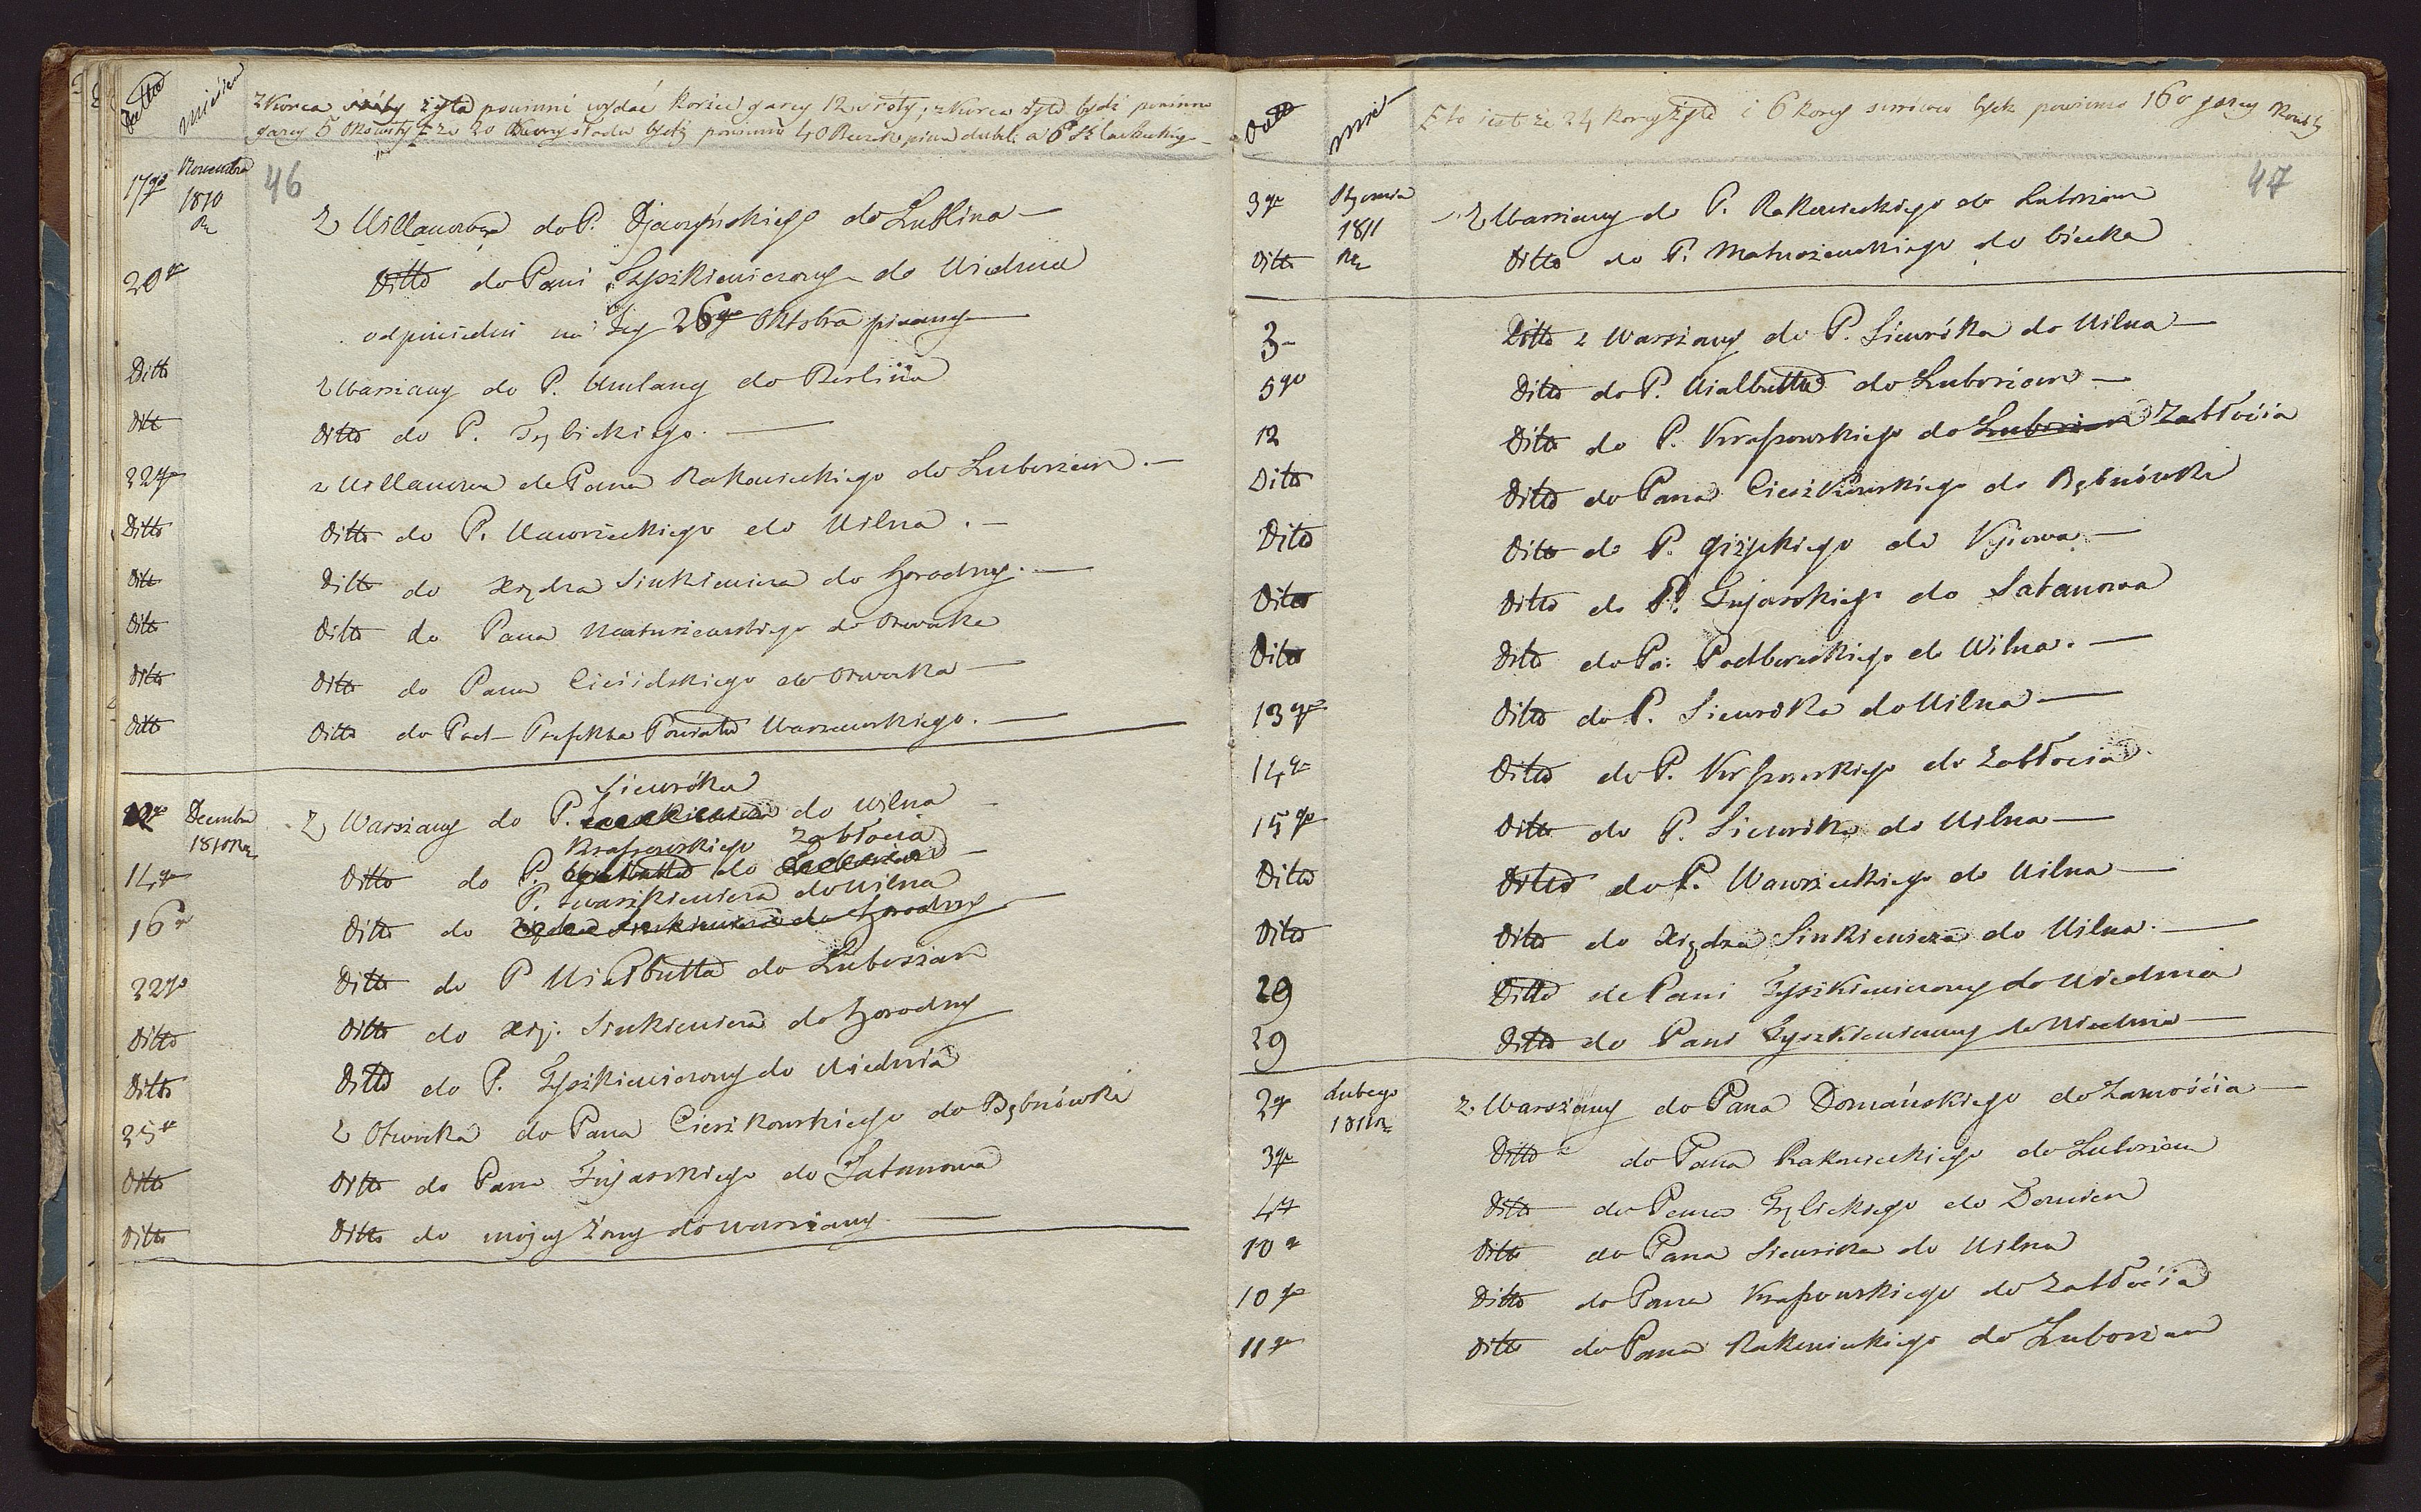 Datta miesiąca
z korca żyta powinni wydać korzec garcy 12 z korca żyta bydź powinno
garcy 5 okowity ze 20 słodu bydź powinno 40 Beczek piwa dubl: a 6
46
17go Novembra 1810 Ru Z Willanowa do P. do Lublina —
20go Ditto do Pani Tyszkiewiczowy do Wiednia
odpowiedni na Jey 26go Oktobra pisany —
Ditto z Warszawy do P. do Berlina
Ditt Ditto do P. Trębickiego. —
22go z Willanowa do Pana Rakowieckiego do Luboszan. —
Ditto Ditto do P. Wawrzeckiego do Wilna. —
Ditt Ditto do Xiędza Sinkiewicza do Horodny. —
Ditto Ditto do Pana Matusiewskiego do Otwocka
Ditto Ditto do Pana Ciesielskiego do Otwocka —
Ditto Ditto do Pod-Prefekta Powiatu Warszawskiego. —
Siewróka
12go Decembra 1810 Ru Z Warszawy do P. do Wilna —
Kraszewskiego Zabłocia
14go Ditto do P. do —
P. Iwaszkiewicza do Wilna
16go Ditto do Xiędza Sinkiewicza do Horodny —
22go Ditto do P Wialbutta do Luboszan
Ditto Ditto do Xię. Sinkiewicza do Horodny
Ditto Ditto do P. Tyszkiewiczowy do Wiednia
25go Z Otwocka do Pana Cieszkowskiego do Bębnówki
Ditto Ditto do Pana Tujarskiego do Satanowa
Ditto Ditto do mojey Żony do Warszawy. —
Datta mies
to iest że 24 korcy żyta i 6 korcy bydź powinno 160 garcy
47
3go Stycznia 1811 Ru Z Warszawy do P. Rakowieckiego do Luboszan
Ditto Ditto do P. Matuszewskiego do
3— Ditto z Warszawy do P. Siewróka do Wilna —
5go Ditto do P. Wialbutta do Luboszan —
12 Ditto do P. Kraszewskiego do Luboszan Zabłocia
Ditto Ditto do Pana Cieszkowskiego do Bębnówki
Ditto Ditto do P. Giżyckiego do Kijowa —
Ditto Ditto do P. Tujarskiego do Satanowa
Ditto Ditto do Pa: Podbereskiego do Wilna. —
13go Ditto do P. Siewróka do Wilna —
14go Ditto do P. Kraszewskiego do Zabłocia.
15go Ditto do P. Siewróka do Wilna —
Ditto Ditto do P. Wawrzeckiego do Wilna —
Ditto Ditto do Xiędza Sinkiewicza do Wilna. —
29 Ditto do Pani Tyszkiewiczowy do Wiednia
29 Ditto do Pani Tyszkiewiczowy do Wiednia —
2go Lutego 1811 Ru z Warszawy do Pana Domańskiego do Zamościa —
3go Ditto do Pana Rakowieckiego do Luboszan
4go Ditto do Pana Trębickiego do
10go Ditto do Pana Siewróka do Wilna
10go Ditto do Pana Kraszewskiego do Zabłocia
11go Ditto do Pana Rakowieckiego do Luboszan